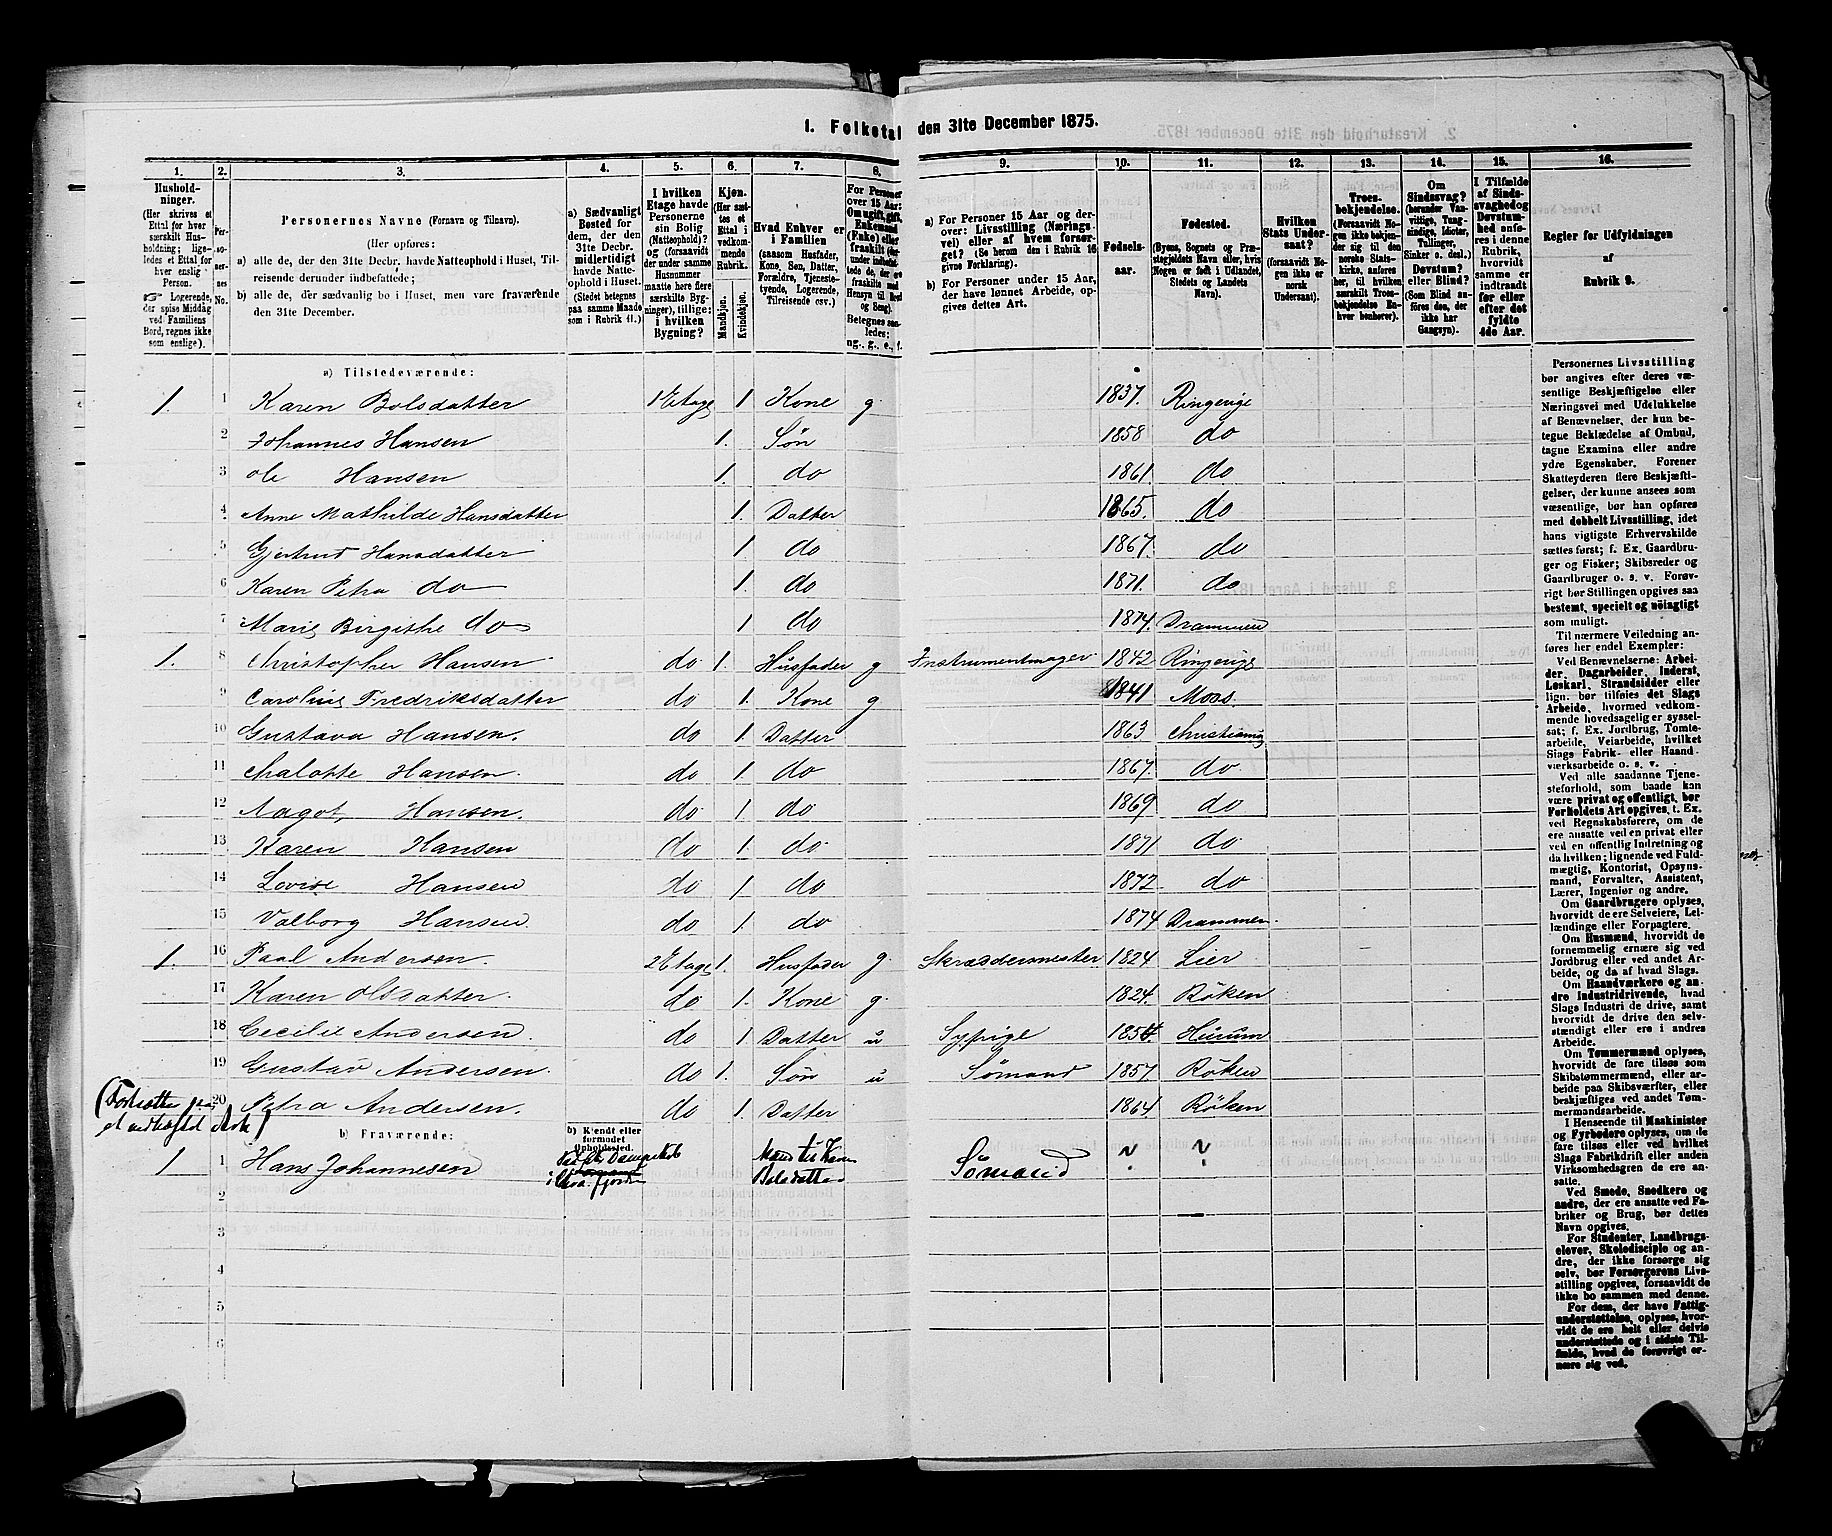 1. Folketal den 31te December 1875.
1. 2. 3. 4. 5. 6. 7. 8. 9. 10. 11. 12. 13. 14. 15. 16.
Hushold-
ninger.
(Her skrives et
Ettal for hver
særskilt Hus-
holdning; lige-
ledes et Ettal for
hver enslig
Person.
☞ Logerende,
der spise Middag
ved Familiens
Bord, regnes ikke
som enslige).
Per-
so-
ner-
nes
No.
Personernes Navne (Fornavn og Tilnavn).
(Her opføres:
a) alle de, der den 31te Decbr. havde Natteophold i Huset, Til-
reisende derunder indbefattede;
b) alle de, der sædvanlig bo i Huset, men vare fraværende
den 31te December.
a) Sædvanligt
Bosted for
dem, der den
31te Decbr.
midlertidigt
havde Natte-
ophold i Huset.
(Stedet betegnes
paa samme Maade
som i Rubrik 11.)
I hvilken
Etage havde
Personerne
sin Bolig
(Natteophold)?
(forsaavidt
der under samme
Husnummer
maatte høre flere
særskilte Byg-
ninger), tillige:
i hvilken
Bygning?
Kjøn.
(Her sæt-
tes et
Ettal i
vedkom-
mende
Rubrik.
Mandkjøn.
Kvindekjøn.
Hvad Enhver er
i Familien
(saasom Husfader,
Kone, Søn, Datter,
Forældre, Tjeneste-
tyende, Logerende,
Tilreisende osv.)
For Personer
over 15 Aar:
Om ugift, gift,
Enkemand
(Enke) eller
fraskilt
Betegnes saa-
ledes:
ug., g., e., f.
a) For Personer 15 Aar og der-
over: Livsstilling (Nærings-
vei) eller af hvem forsør-
get? (Se herom den i Rubrik 16
givne Forklaring).
b) For Personer under 15 Aar,
der have lønnet Arbeide, op-
gives dettes Art.
Fødsels-
aar.
Fødested.
(Byens, Sognets og Præ-
stegjeldets Navn eller, hvis
Nogen er født i Udlandet,
Stedets og Landets
Navn).
Hvilken
Stats Under-
saat?
(forsaavidt No-
gen ikke er
norsk
Undersaat).
Troes-
bekjendelse.
(Forsaavidt No-
gen ikke bekjen-
der sig til den
norske Stats-
kirke, anføres
her, til hvilken
særskilt Troes-
bekjendelse En-
hver henhører).
Om
Sindssvag?
(herunder Van-
vittige, Tung-
sindige, Idioter,
Tullinger,
Sinker o. desl.)
Døvstum?
eller Blind?
(Som Blind an-
føres den, der
ikke har
Gangsyn).
I Tilfælde
af Sinds-
svaghed og
Døvstum-
hed anfø-
res i denne
Rubrik,
hvorvidt
samme er
indtraadt
før eller
efter det
fyldte
4de Aar.
Regler for Udfyldningen
af
Rubrik 9.
a) Tilstedeværende:
1. 1 Karen Bolsdatter 1 Etage 1 Kone g 1837. Ringerige
2 Johannes Hansen 1. Søn 1858 do
3 ole Hansen 1. do 1861. do
4 Anne Mathilde Hansdatter 1. Datter 1865. do
5 Gjertrud Hansdatter 1. do 1867. do
6 Karen Petra do 1. do 1871. do
7 Marie Birgithe do 1 do 1874. Drammen
1. 8 Christopher Hansen do 1. Husfader g Instrumentmager 1842 Ringerige
9 Caroline Fredriksdatter do 1. Kone g 1841 Moss.
10 Gustava Hansen. do 1. Datter 1863 Christiania
11 Chalotte Hansen. do 1. do 1867. do
12 Aagot Hansen. do 1 do 1869 do
13 Karen Hansen do 1. do 1871 do
14 Lovise Hansen do 1 do 1872 do
15 Valborg Hansen do 1. do 1874 Drammen
1. 16 Paal Andersen 2 Etage 1. Husfader g. Skræddermester 1824 Lier
17 Karen Olsdatter. do 1. Kone g. 1824. Röken
18 Cecilie Andersen. do 1 Datter u Sypige 1854. Hurum
19 Gustav Andersen. do 1. Søn u Sømand 1857 Röken
20 Petra Andersen. do 1. Datter 1864 Röken
(Fortsættes paa
et vedhæftet Ark)
b) Fraværende:
b) Kjendt eller
formodet
Opholdssted.
1 1 Hans Johannesen Mand til Karen
Bolsdatter Sømand ? ?
2
3
4
5
6
Personernes Livsstilling
bør angives efter deres væ-
sentlige Beskjæftigelse eller
Næringsvei med Udelukkelse
af Benævnelser, der kun be-
tegne Beklædelse af Ombud,
tagne Examina eller andre
ydre Egenskaber. Forener
Skatteyderen flere Beskjæfti-
gelser, der kunne ansees som
væsentlige, bør han opføres
med dobbelt Livsstilling, idet
hans vigtigste Erhvervskilde
sættes først; f. Ex. Gaardbru-
ger og Fisker; Skibsreder og
Gaardbruger o. s. v. Forøv-
rigt bør Stillingen opgives saa
bestemt, specielt og nøiagtigt
som muligt.
Til nærmere Veiledning an-
føres her endel Exempler:
Ved Benævnelserne: Arbei-
der, Dagarbeider, Inderst,
Løskarl, Strandsidder eller
lign. bør tilføies det Slags
Arbeide, hvormed vedkom-
mende hovedsagelig er syssel-
sat; f. Ex. Jordbrug, Tomte-
arbeide, Veiarbeide, hvilket
Slags Fabrik- eller Haand-
værksarbeide o. s. v.
Ved alle saadanne Tjene-
steforhold, som baade kan
være privat og offentligt, bør
Forholdets Art opgives, t. Ex.
ved Regnskabsførere, om de
ere ansatte ved en privat eller
ved en offentlig Indretning og
da hvilken; lignende ved Fuld-
mægtig, Kontorist, Opsyns-
mand, Forvalter, Assistent,
Lærer, Ingeniør og andre.
Om Gaardbrugere oplyses,
hvorvidt de ere Selveiere, Lei-
lændinge eller Forpagtere.
Om Husmænd, hvorvidt de
fornemmelig ernære sig ved
Jordbrug eller ved andet Ar-
beide, og da af hvad Slags.
Om Haandværkere og an-
dre Industridrivende, hvad
Slags Industri de drive, samt
hvorvidt de drive den selv-
stændigt eller ere i andres
Arbeide.
Om Tømmermænd oplyses,
hvorvidt de fare tilsøs som
Skibstømmermænd, eller ar-
beide paa Skibsværfter, eller
beskjæftiges ved andet Tøm-
mermandsarbeide.
I Henseende til Maskinister
og Fyrbødere oplyses, om de
fare tilsøs eller ved hvilket
Slags Fabrikdrift eller anden
Virksomhedsgren de ere an-
satte.
Ved Smede, Snedkere og
andre, der ere ansatte ved Fa-
briker og Brug, bør dettes
Navn opgives.
For Studenter, Landbrugs-
elever, Skoledisciple og an-
dre, der ikke forsørge sig
selv, bør Forsørgerens Livs-
stilling opgives, forsaavidt de
ikke bo sammen med denne.
For dem, der have Fattig-
understøttelse, oplyses, hvor-
vidt de ere helt eller delvis
understøttede og i sidste Til-
fælde, hvad de forøvrigt er-
nære sig ved.